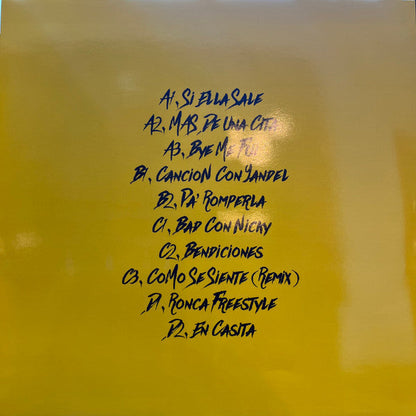 A1, Si Ella Sale
A2, MAS DE UNA Cita
A3, Bye Me Fui
B1, Cancion Con Yandel
B2, Pa' Romperla
C1, Bad Con Nicky
C2, Bendiciones
C3, CoMo Se Siente (Remix)
D1, Ronca Freestyle
D2, En Casita